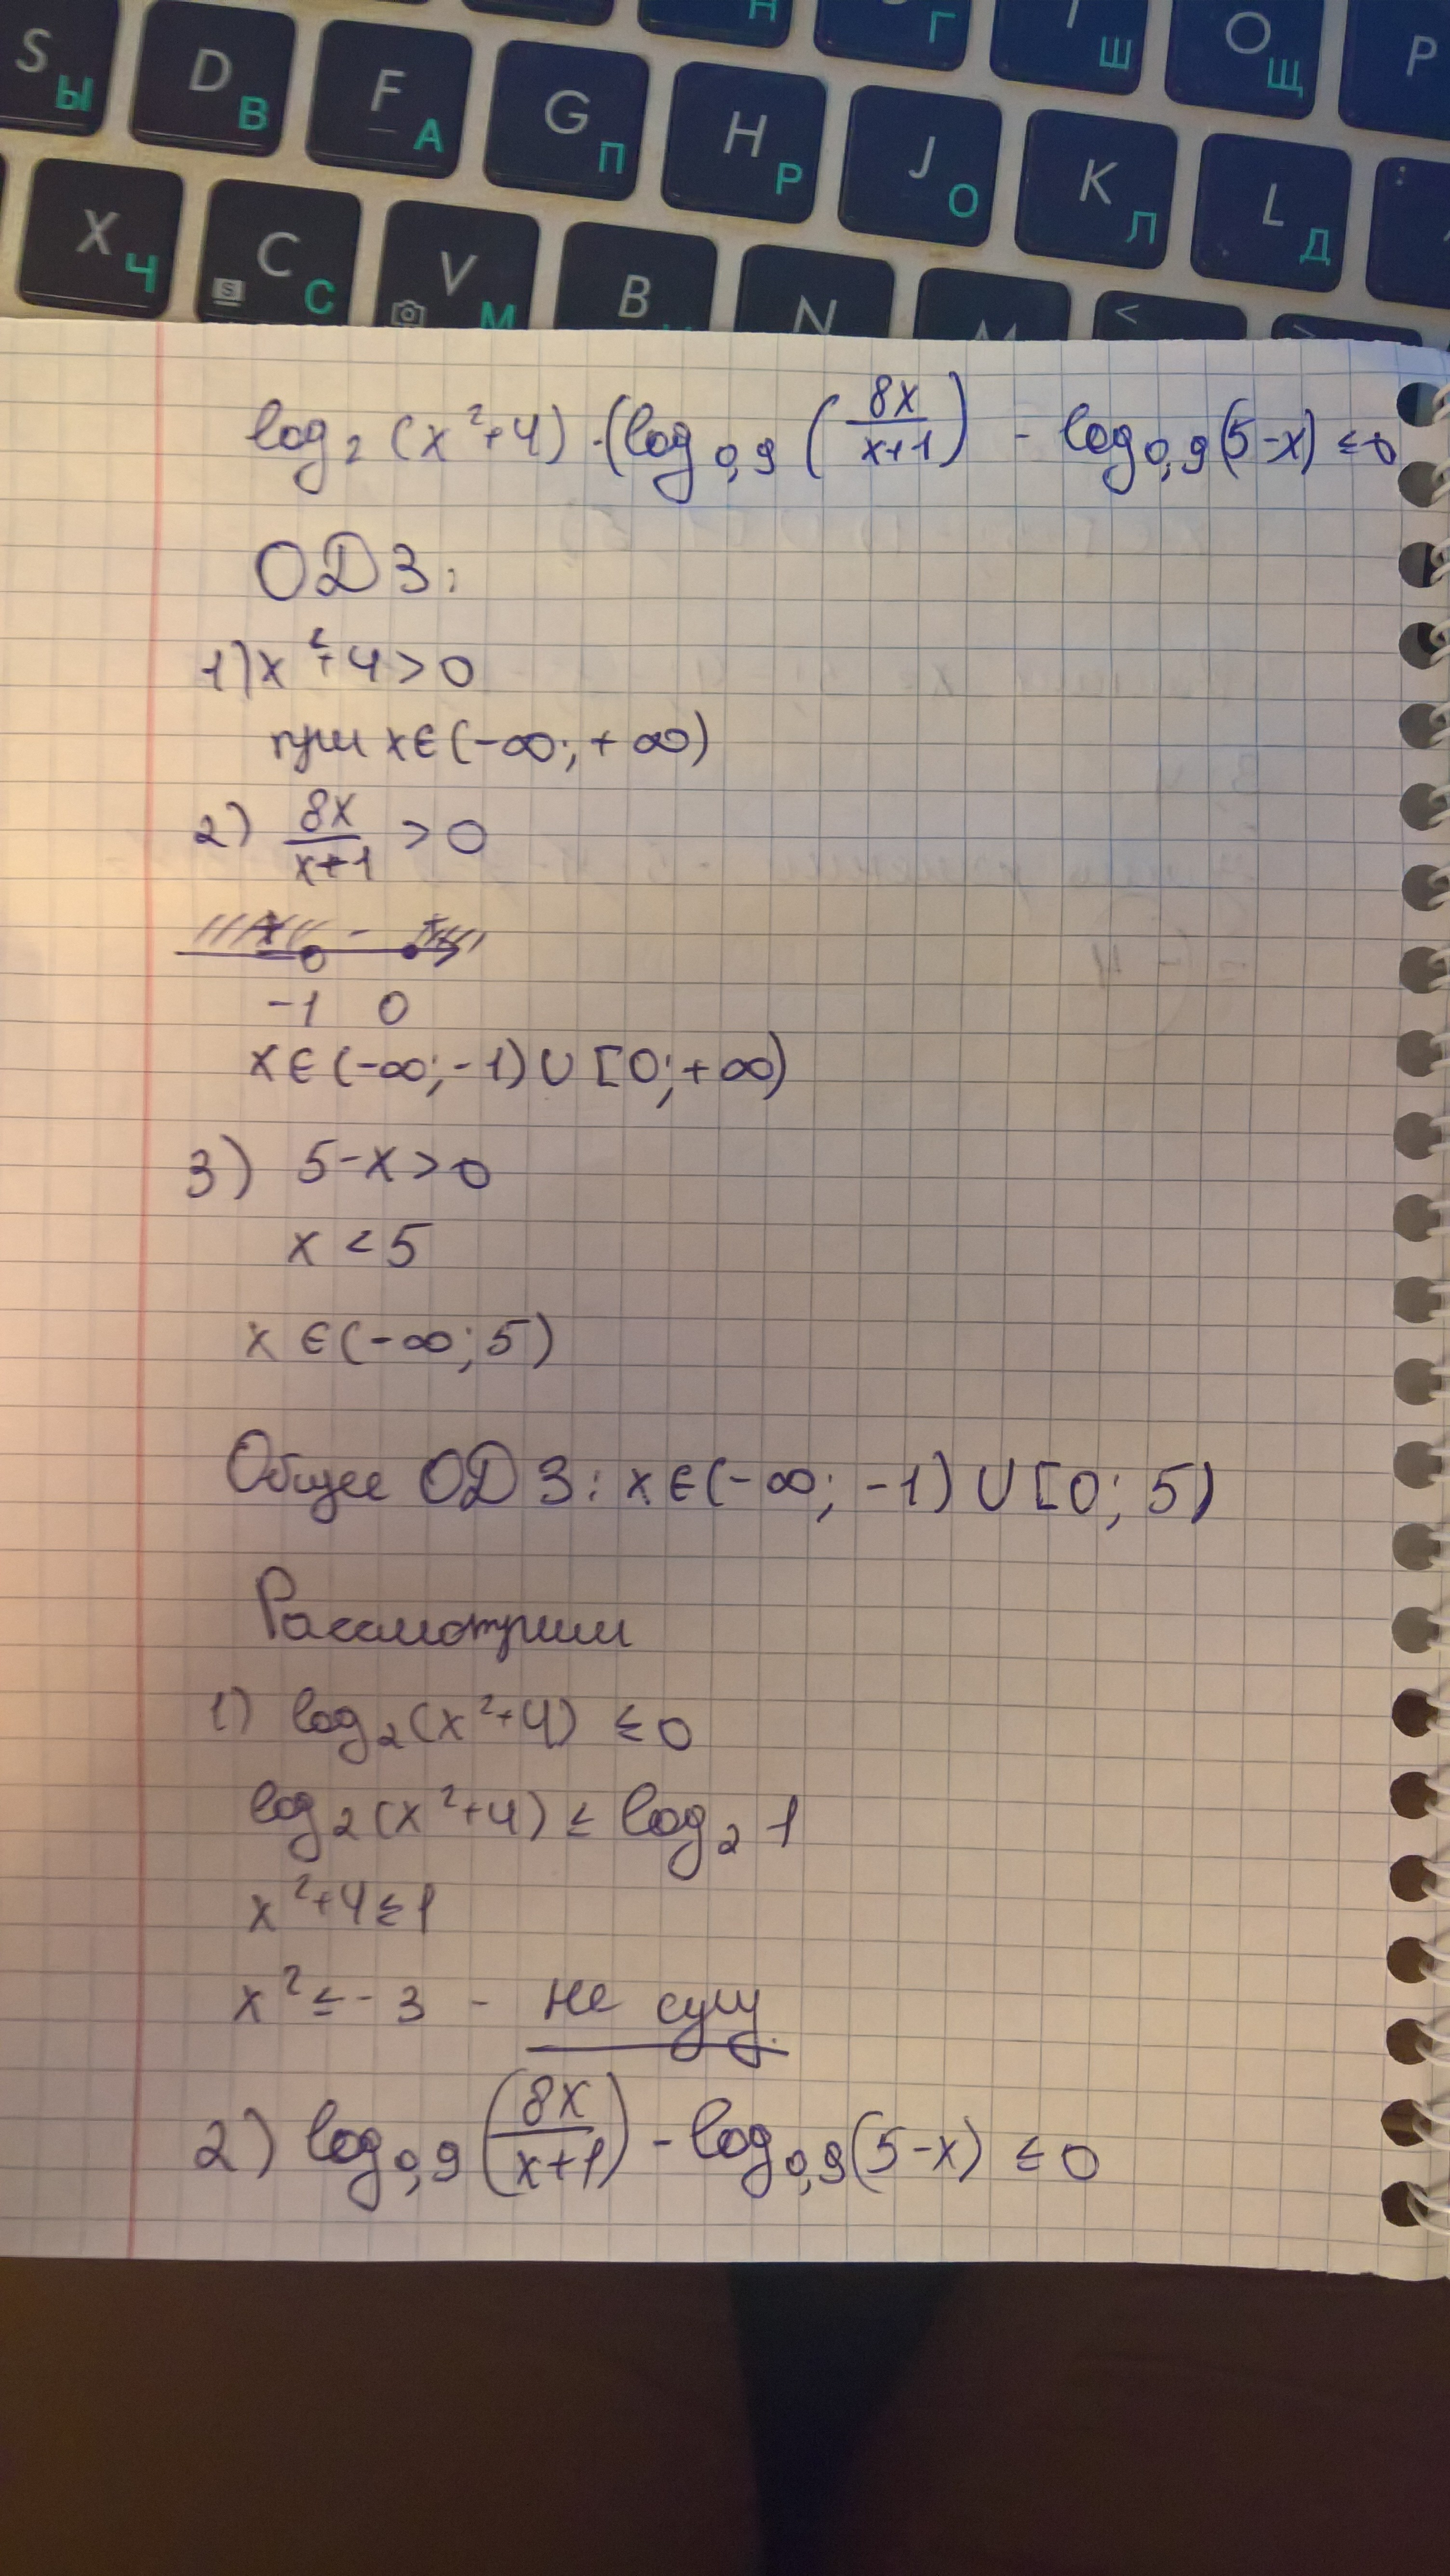 Н Г Ш O Щ P
S Ы D В F А G П H Р J О K Л L Д :
X Ч C С V М B N M < >
log₂(x²+4)·(log₀,₉(8x/(x+1)) - log₀,₉(5-x) ≤0
ОДЗ:
1) x²+4>0
при x∈(-∞;+∞)
2) 8x/(x+1) >0
+ - +
-1 0
x∈(-∞;-1)∪[0;+∞)
3) 5-x>0
x<5
x∈(-∞;5)
Общее ОДЗ: x∈(-∞;-1)∪[0;5)
Рассмотрим
1) log₂(x²+4) ≤0
log₂(x²+4) ≤ log₂1
x²+4≤1
x²≤-3 - не сущ.
2) log₀,₉(8x/(x+1)) - log₀,₉(5-x) ≤0